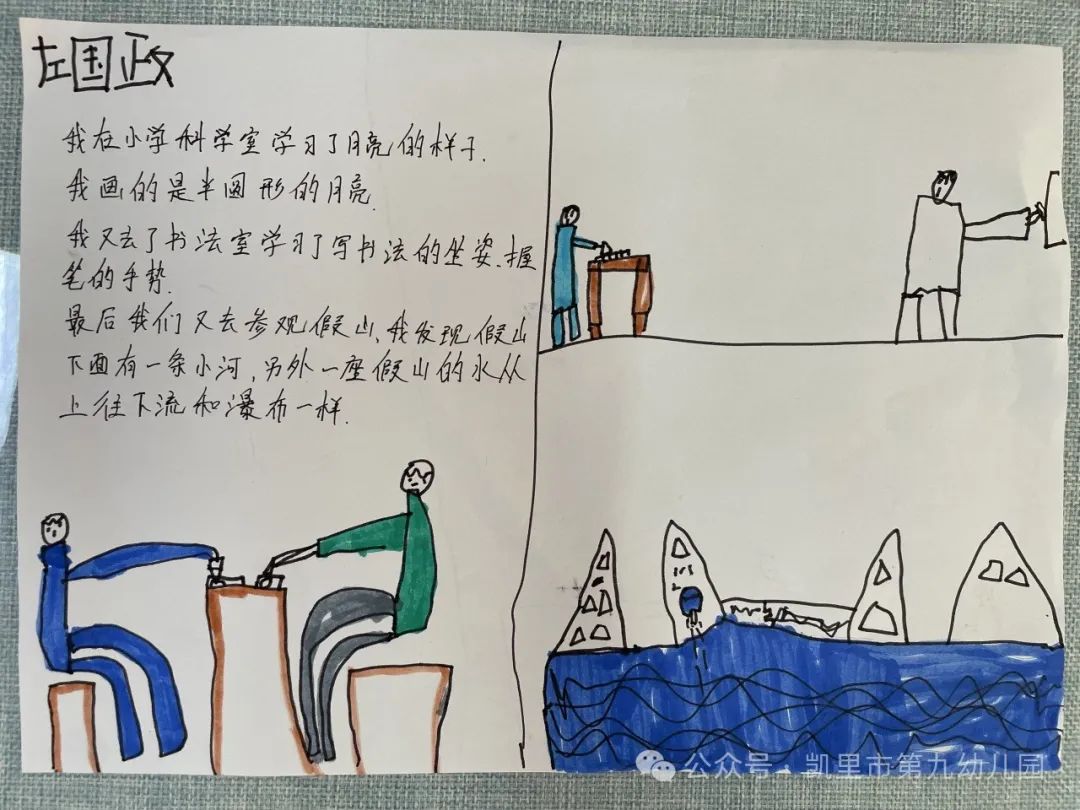 左国政
我在小学科学室学习了月亮的样子.
我画的是半圆形的月亮.
我又去了书法室学习了写书法的坐姿、握
笔的手势.
最后我们又去参观假山,我发现假山
下面有一条小河,另外一座假山的水从
上往下流和瀑布一样.
公众号 · 凯里市第九幼儿园